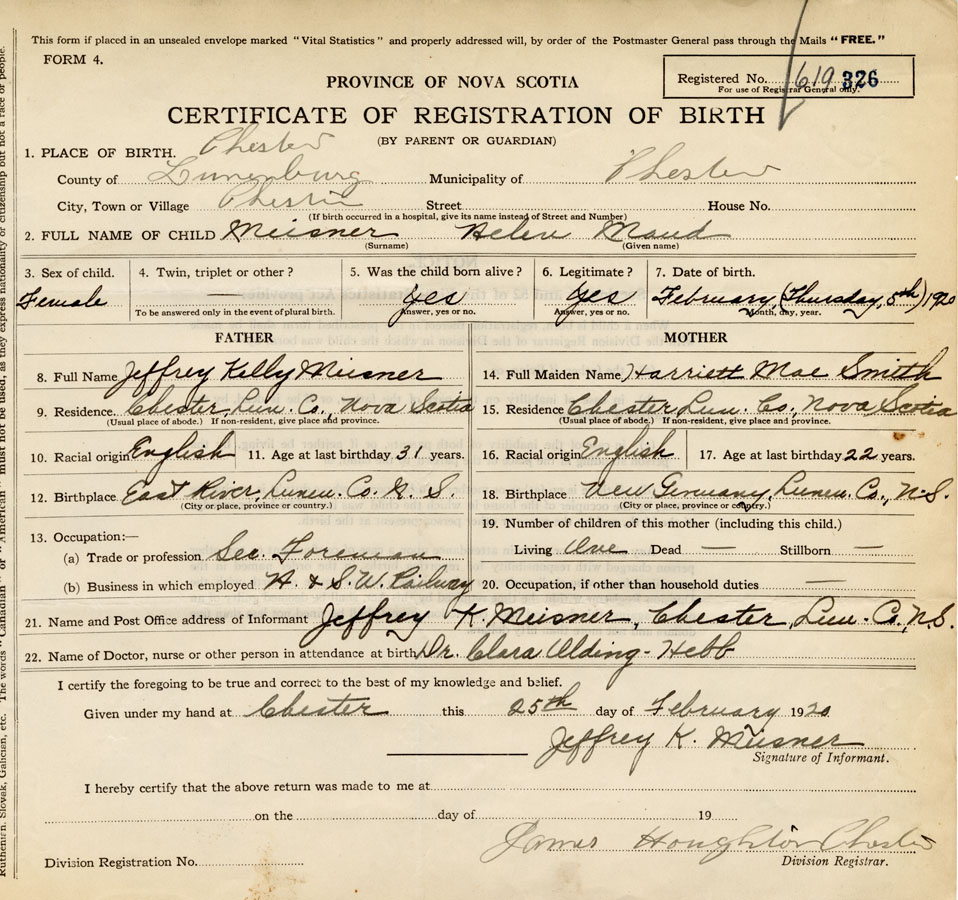 This form if placed in an unsealed envelope marked "Vital Statistics" and properly addressed will, by order of the Postmaster General pass through the Mails "FREE."
FORM 4.
Registered No. 619 326
For use of Registrar General only.
PROVINCE OF NOVA SCOTIA
CERTIFICATE OF REGISTRATION OF BIRTH
(BY PARENT OR GUARDIAN)
1. PLACE OF BIRTH. Chester
County of Lunenburg Municipality of Chester
City, Town or Village Chester Street House No.
(If birth occurred in a hospital, give its name instead of Street and Number)
2. FULL NAME OF CHILD Meisner Helen Maud
(Surname) (Given name)
3. Sex of child. 4. Twin, triplet or other? 5. Was the child born alive? 6. Legitimate? 7. Date of birth.
Female — Yes Yes February, (Thursday, 5th) 1920
To be answered only in the event of plural birth. Answer, yes or no. Answer, yes or no. Month, day, year.
FATHER
8. Full Name Jeffrey Kelly Meisner
9. Residence Chester, Lun. Co., Nova Scotia
(Usual place of abode.) If non-resident, give place and province.
10. Racial origin English 11. Age at last birthday 31 years.
12. Birthplace East River, Lunen. Co. N. S.
(City or place, province or country.)
13. Occupation:—
(a) Trade or profession Sec. Foreman
(b) Business in which employed H. & S. W. Railway
MOTHER
14. Full Maiden Name Harriett Mae Smith
15. Residence Chester Lun. Co, Nova Scotia
(Usual place of abode.) If non-resident, give place and province.
16. Racial origin English 17. Age at last birthday 22 years.
18. Birthplace New Germany, Lunen. Co., N.S.
(City or place, province or country.)
19. Number of children of this mother (including this child.)
Living One Dead — Stillborn —
20. Occupation, if other than household duties —
21. Name and Post Office address of Informant Jeffrey K. Meisner, Chester, Lun. Co., N.S.
22. Name of Doctor, nurse or other person in attendance at birth Dr. Clara Olding-Hebb
I certify the foregoing to be true and correct to the best of my knowledge and belief.
Given under my hand at Chester this 25th day of February 1920
Jeffrey K. Meisner
Signature of Informant.
I hereby certify that the above return was made to me at
on the day of 19
James Houghton Chester
Division Registration No. Division Registrar.
Ruthenian, Slovak, Galician, etc. The words "Canadian" or "American" must not be used, as they express nationality or citizenship but not a race or people.